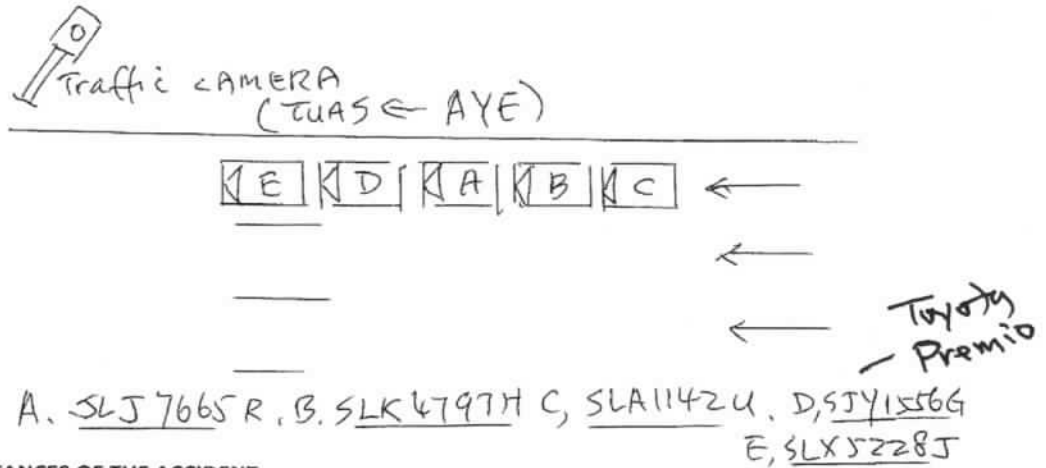 Traffic CAMERA
(TUAS ← AYE)
E D A B C
Toyota
- Premio
A. SLJ 7665 R. B. SLK4797H C, SLA1142U. D, SJY1556G
E, SLX5228J